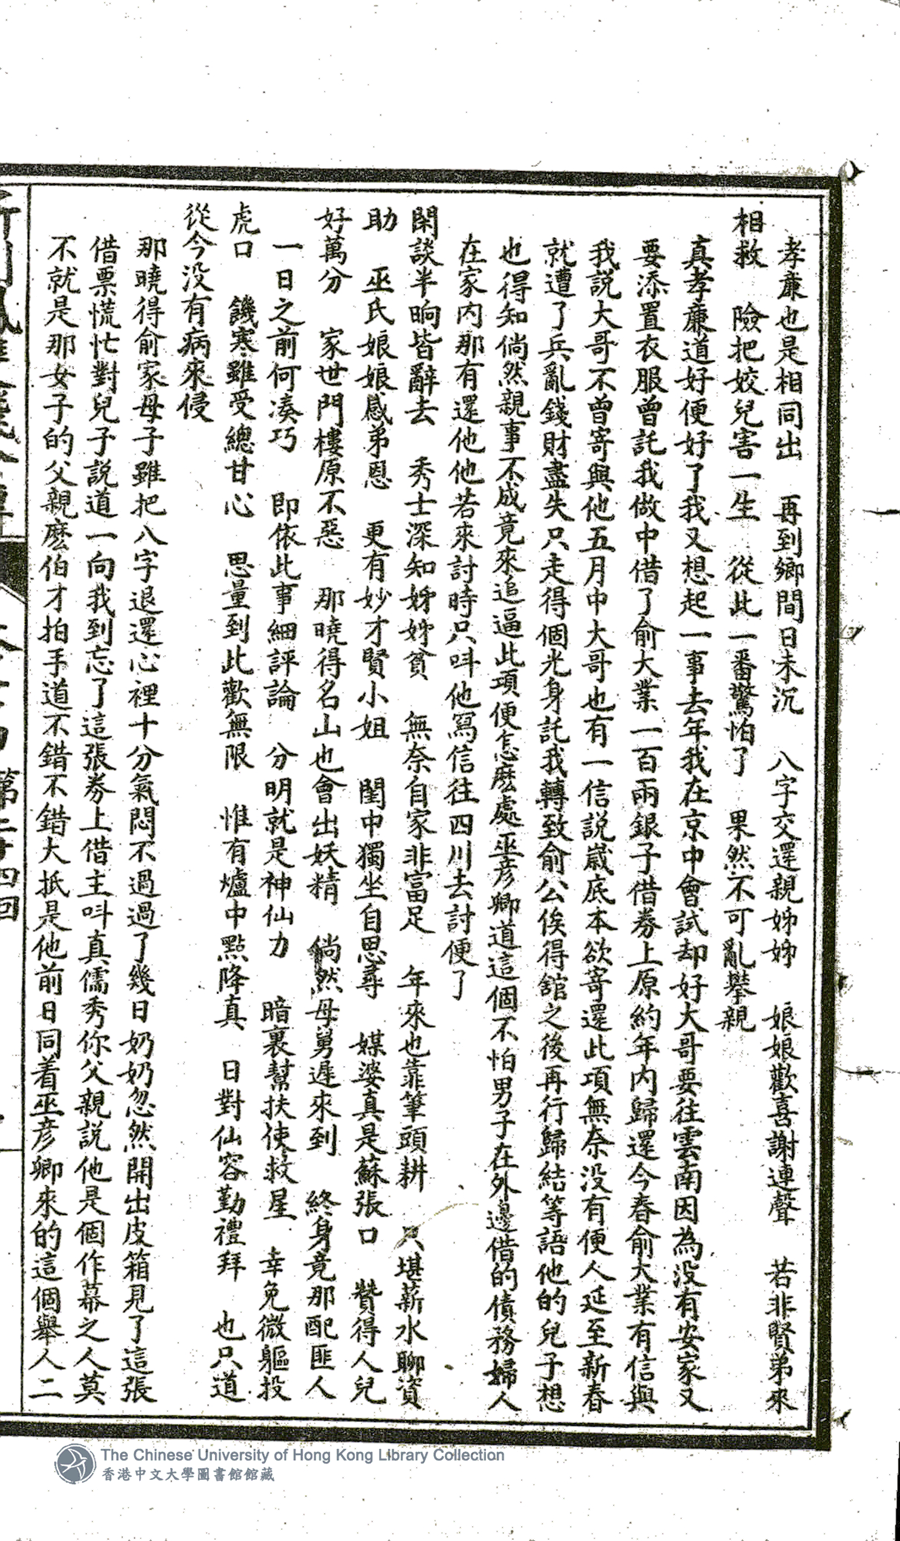 孝廉也是相同出　再到鄉間日未沉　八字交還親姊姊　娘娘歡喜謝連聲　若非賢弟來
相救　險把姣兒害一生　從此一番驚怕了　果然不可亂攀親
真孝廉道好便好了我又想起一事去年我在京中會試却好大哥要往雲南因為没有安家又
要添置衣服曾託我做中借了俞大業一百兩銀子借券上原約年内歸還今春俞大業有信與
我説大哥不曾寄與他五月中大哥也有一信説嵗底本欲寄還此項無奈没有便人延至新春
就遭了兵亂錢財盡失只走得個光身託我轉致俞公俟得舘之後再行歸結等語他的兒子想
也得知倘然親事不成竟來追逼此項便怎麽處巫彦卿道這個不怕男子在外邊借的債務婦人
在家内那有還他他若來討時只呌他冩信往四川去討便了
閑談半晌皆辭去　秀士深知姊姊貧　無奈自家非富足　年來也靠筆頭耕　只堪薪水聊資
助　巫氏娘娘感弟恩　更有妙才賢小姐　閨中獨坐自思尋　媒婆真是蘇張口　贊得人兒
好萬分　家世門樓原不惡　那曉得名山也會出妖精　倘然母舅遲來到　終身竟那配匪人
一日之前何凑巧　即依此事細評論　分明就是神仙力　暗裏幫扶使救星　幸免微軀投
虎口　饑寒雖受總甘心　思量到此歡無限　惟有爐中點降真　日對仙容勤禮拜　也只道
從今没有病來侵
那曉得俞家母子雖把八字退還心裡十分氣悶不過過了幾日奶奶忽然開出皮箱見了這張
借票慌忙對兒子説道一向我到忘了這張券上借主呌真儒秀你父親説他是個作幕之人莫
不就是那女子的父親麽伯才拍手道不錯不錯大抵是他前日同着巫彦卿來的這個舉人二
第二十四回
The Chinese University of Hong Kong Library Collection
香港中文大學圖書館館藏